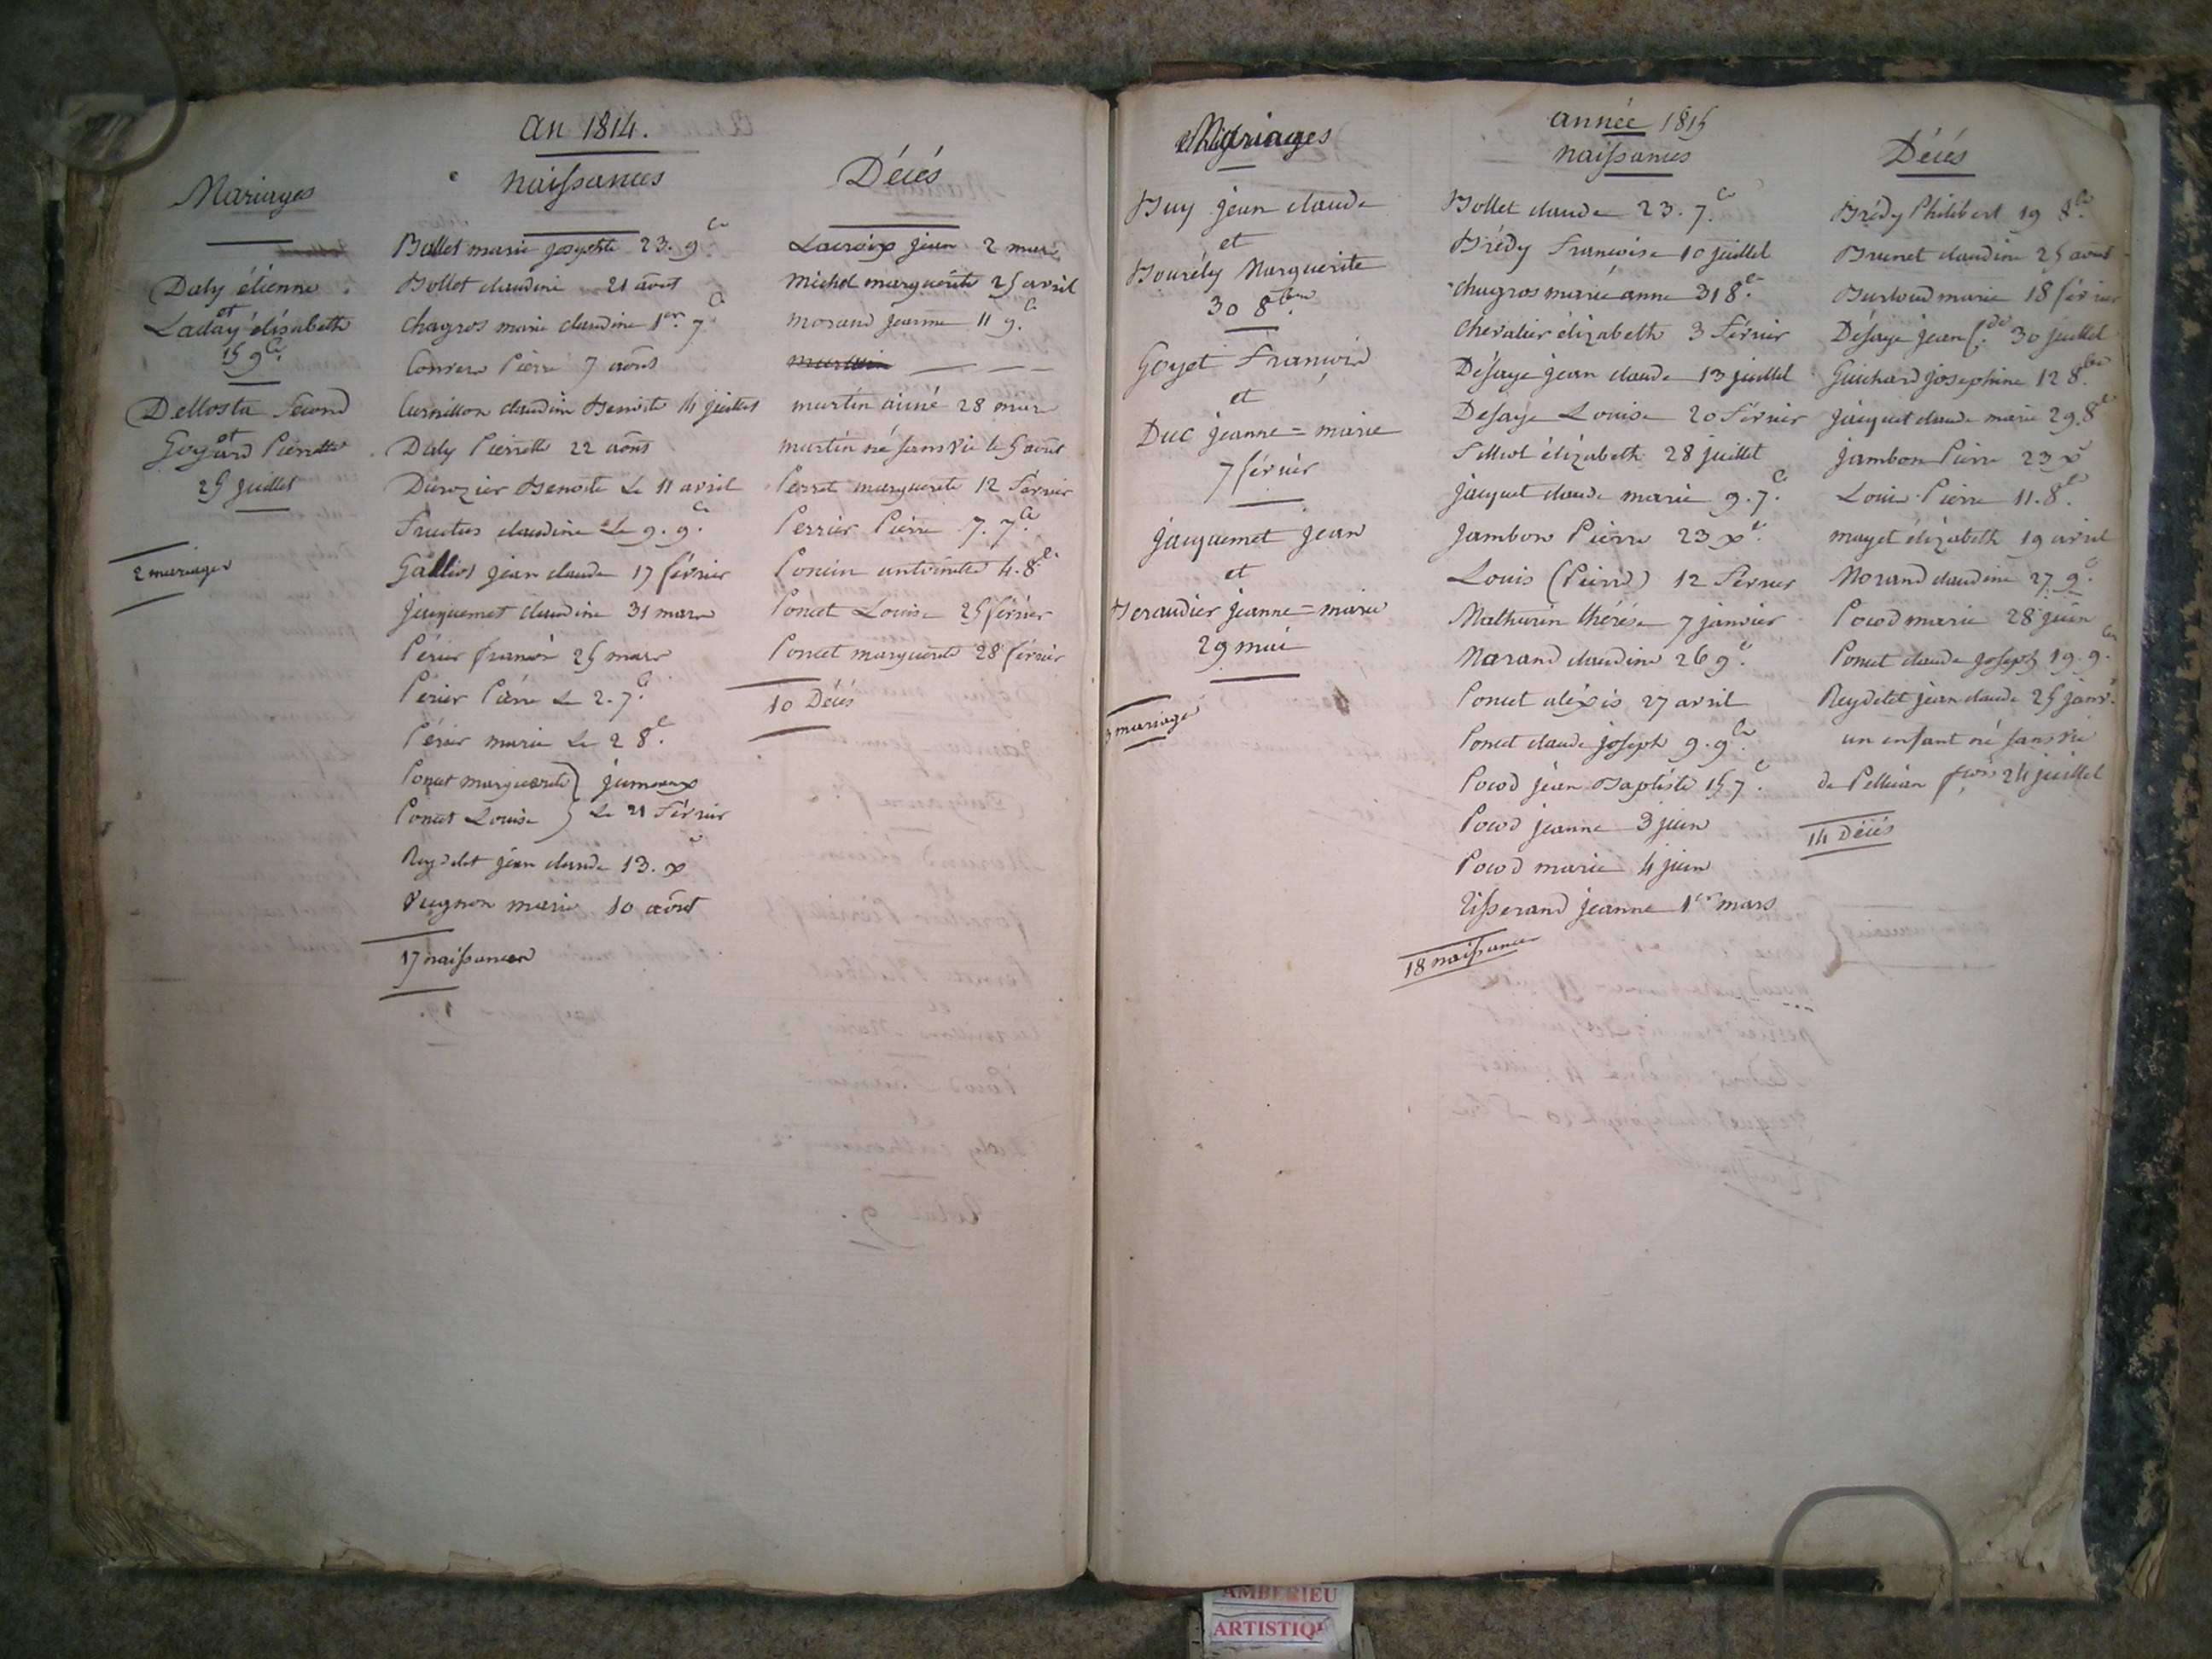 an 1814.
Mariages
Daly étienne
et
Laday élisabeth
15 9e.
Dellosta Second
et
Goyard Pierrette
25 juillet
2 mariages
naissances
Bollet marie josephte 23. 9e
Bollet claudine 21 août
Chagros marie claudine 1er. 7e
Convers Pierre 7 août
Curnillon claudine Benoite 14 juillet
Daly Pierrette 22 août
Durozier Benoite Le 11 avril
Fructus claudine Le 9. 9e.
Galliot jean claude 17 février
jacquemet claudine 31 mars
Périer françois 25 mars
Périer Pierre Le 2. 7e.
Périer marie Le 2 8e.
Poncet marguerite } jumeaux
Poncet Louise } Le 21 Février
Reydelet jean claude 13. xe
Vugnon marie 10 août
17 naissances
Décés
Lacroix jean 2 mars
michel marguerite 25 avril
morand jeanne 11 9e.
martin
martin aimé 28 mars
martin né sans vie le 5 août
Perret marguerite 12 Février
Perrier Pierre 7. 7e
Poncin antoinette 4. 8e
Poncet Louise 25 février
Poncet marguerite 28 février
10 Décés
année 1815
Mariages
Buy jean claude
et
Bourély Marguerite
30 8bre.
Goyet François
et
Duc jeanne = marie
7 février
jacquemet jean
et
Beraudier jeanne = marie
29 mai
3 mariages
naissances
Bollet claude 23. 7e.
Brédy Françoise 10 juillet
chagros marie anne 31 8e.
Chevalier élizabeth 3 Février
Désaye jean claude 13 juillet
Desaye Louise 20 Février
Filliol élizabeth 28 juillet
jacquet claude marie 9. 7e.
Jambon Pierre 23 xe.
Louis (Pierre) 12 Février
Mathurin thérése 7 janvier
Morand claudine 26 9e.
Poncet aléxis 27 avril
Poncet claude joseph 9. 9e.
Pocod jean Baptiste 15 7e.
Pocod jeanne 3 juin
Pocod marie 4 juin
Tisserand jeanne 1er mars
18 naissances
Décés
Brédy Philibert 19 8e.
Brunet claudine 25 août
Burloud marie 18 février
Désaye jean Cde 30 juillet
Guichard josephine 12 8bre
jacquet claude marie 29. 8e
jambon Pierre 23 xe
Louis Pierre 11. 8e.
mayet élizabeth 19 avril
Morand claudine 27 9e.
Pocod marie 28 juin
Poncet claude joseph 19. 9e.
Reydelet jean claude 25 janvr.
un enfant né sans vie
de Pellican fçois 24 juillet
14 Décés
AMBERIEU
ARTISTIQU